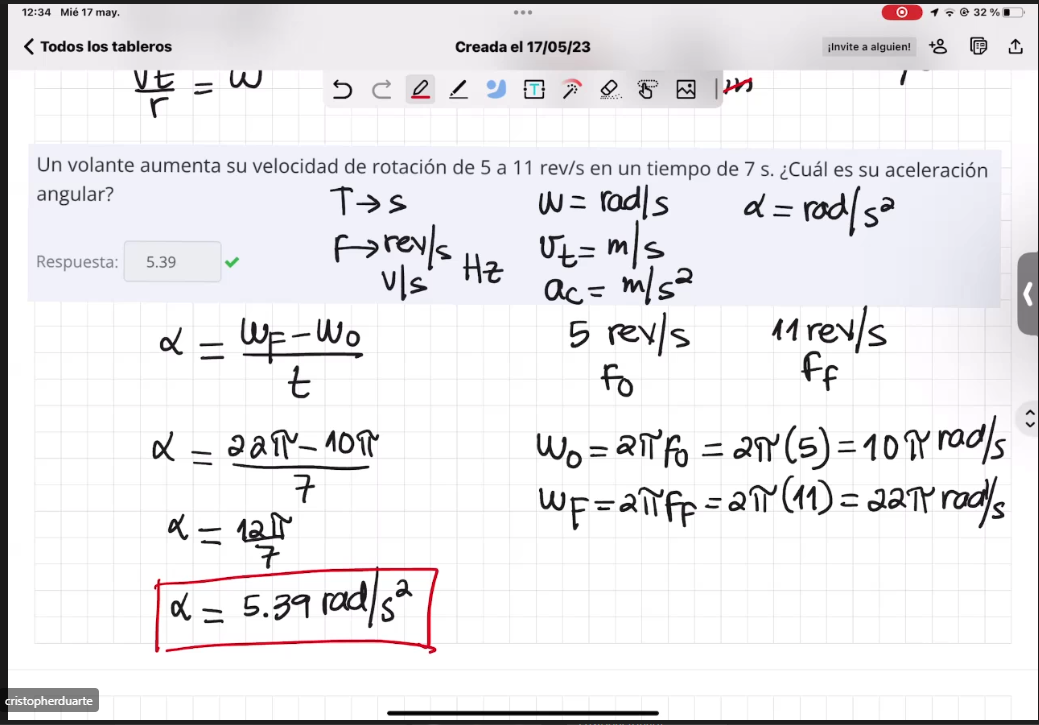 12:34 Mié 17 may.
32 %
Todos los tableros
Creada el 17/05/23
¡Invite a alguien!
vt/r = w
Un volante aumenta su velocidad de rotación de 5 a 11 rev/s en un tiempo de 7 s. ¿Cuál es su aceleración
angular?
T→s
w = rad/s
α = rad/s²
F→rev/s
v/s
Hz
vt = m/s
ac = m/s²
Respuesta: 5.39
α = (wF - wo)/t
5 rev/s
Fo
11 rev/s
fF
α = (22π - 10π)/7
wo = 2πfo = 2π(5) = 10π rad/s
wF = 2πfF = 2π(11) = 22π rad/s
α = 12π/7
α = 5.39 rad/s²
cristopherduarte